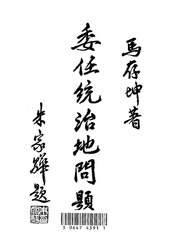 馬存坤著
委任統治地問題
朱家驊題
3 0647 4391 1